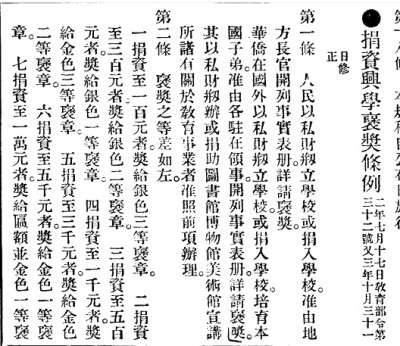 ●捐資興學褒獎條例
二年七月十七日敎育部令第
三十二號又三年十月三十一
日修
正
第一條 人民以私財剏立學校或捐入學校准由地
方長官開列事實表册詳請褒獎。
華僑在國外以私財剏立學校或捐入學校培育本
國子弟准由各駐在領事開列事實表册詳請褒獎。
其以私財剏辦或捐助圖書館博物館美術館宣講
所諸有關於敎育事業者准照前項辦理。
第二條 褒獎之等差如左。
一捐資至一百元者獎給銀色三等褒章。 二捐資
至三百元者獎給銀色二等褒章。 三捐資至五百
元者獎給銀色一等褒章。 四捐資至一千元者獎
給金色三等褒章。 五捐資至三千元者獎給金色
二等褒章。 六捐資至五千元者獎給金色一等褒
章。 七捐資至一萬元者獎給匾額並金色一等褒